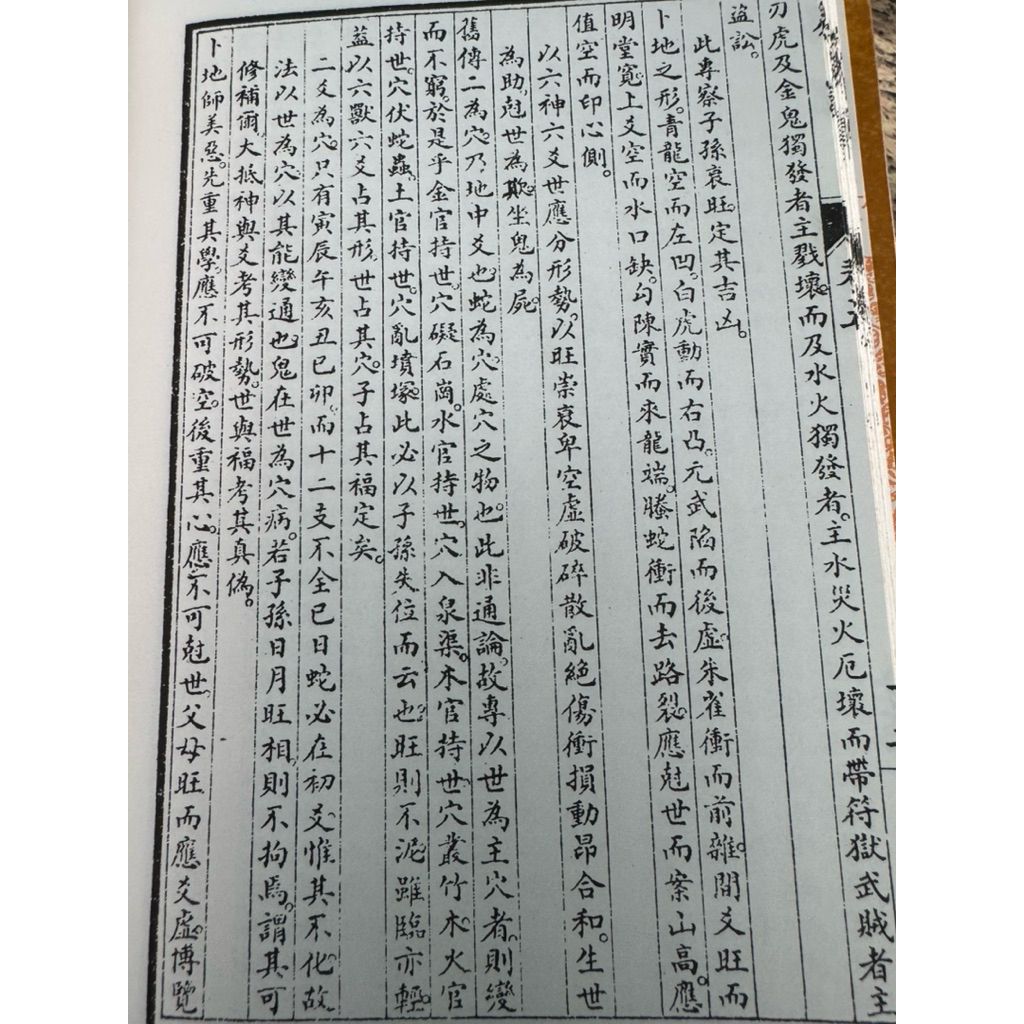 刃虎及金鬼獨發者主戮壞。而及水火獨發者。主水災火厄壞而帶符獄武賊者主
盜訟。
此專察子孫衰旺。定其吉凶。
卜地之形。青龍空而左凹。白虎動而右凸。元武陷而後虛。朱雀衝而前雜。間爻旺而
明堂寬。上爻空而水口缺。勾陳實而來龍端。螣蛇衝而去路裂。應尅世而案山高。應
值空而印心側。
以六神六爻世應分形勢。以旺崇衰卑空虛破碎散亂絕傷衝損動昂合和。生世
為助。尅世為欺。坐鬼為屍。
舊傳二為穴。乃地中爻也。蛇為穴。處穴之物也。此非通論。故專以世為主穴者。則變
而不窮。於是乎金官持世。穴礙石崗。水官持世。穴入泉渠。木官持世。穴叢竹木。火官
持世。穴伏蛇蟲。土官持世。穴亂墳塚。此必以子孫失位而云也。旺則不泥。雖臨亦輕。
益以六獸六爻占其形。世占其穴。子占其福定矣。
二爻為穴。只有寅辰午亥丑巳卯。而十二支不全。已日蛇必在初爻。惟其不化。故
法以世為穴。以其能變通也。鬼在世為穴病。若子孫日月旺相。則不拘焉。謂其可
修補爾。大抵神與爻考其形勢。世與福考其真偽。
卜地師美惡。先重其學。應不可破空。後重其心。應不可尅世。父母旺而應爻虛。博覽